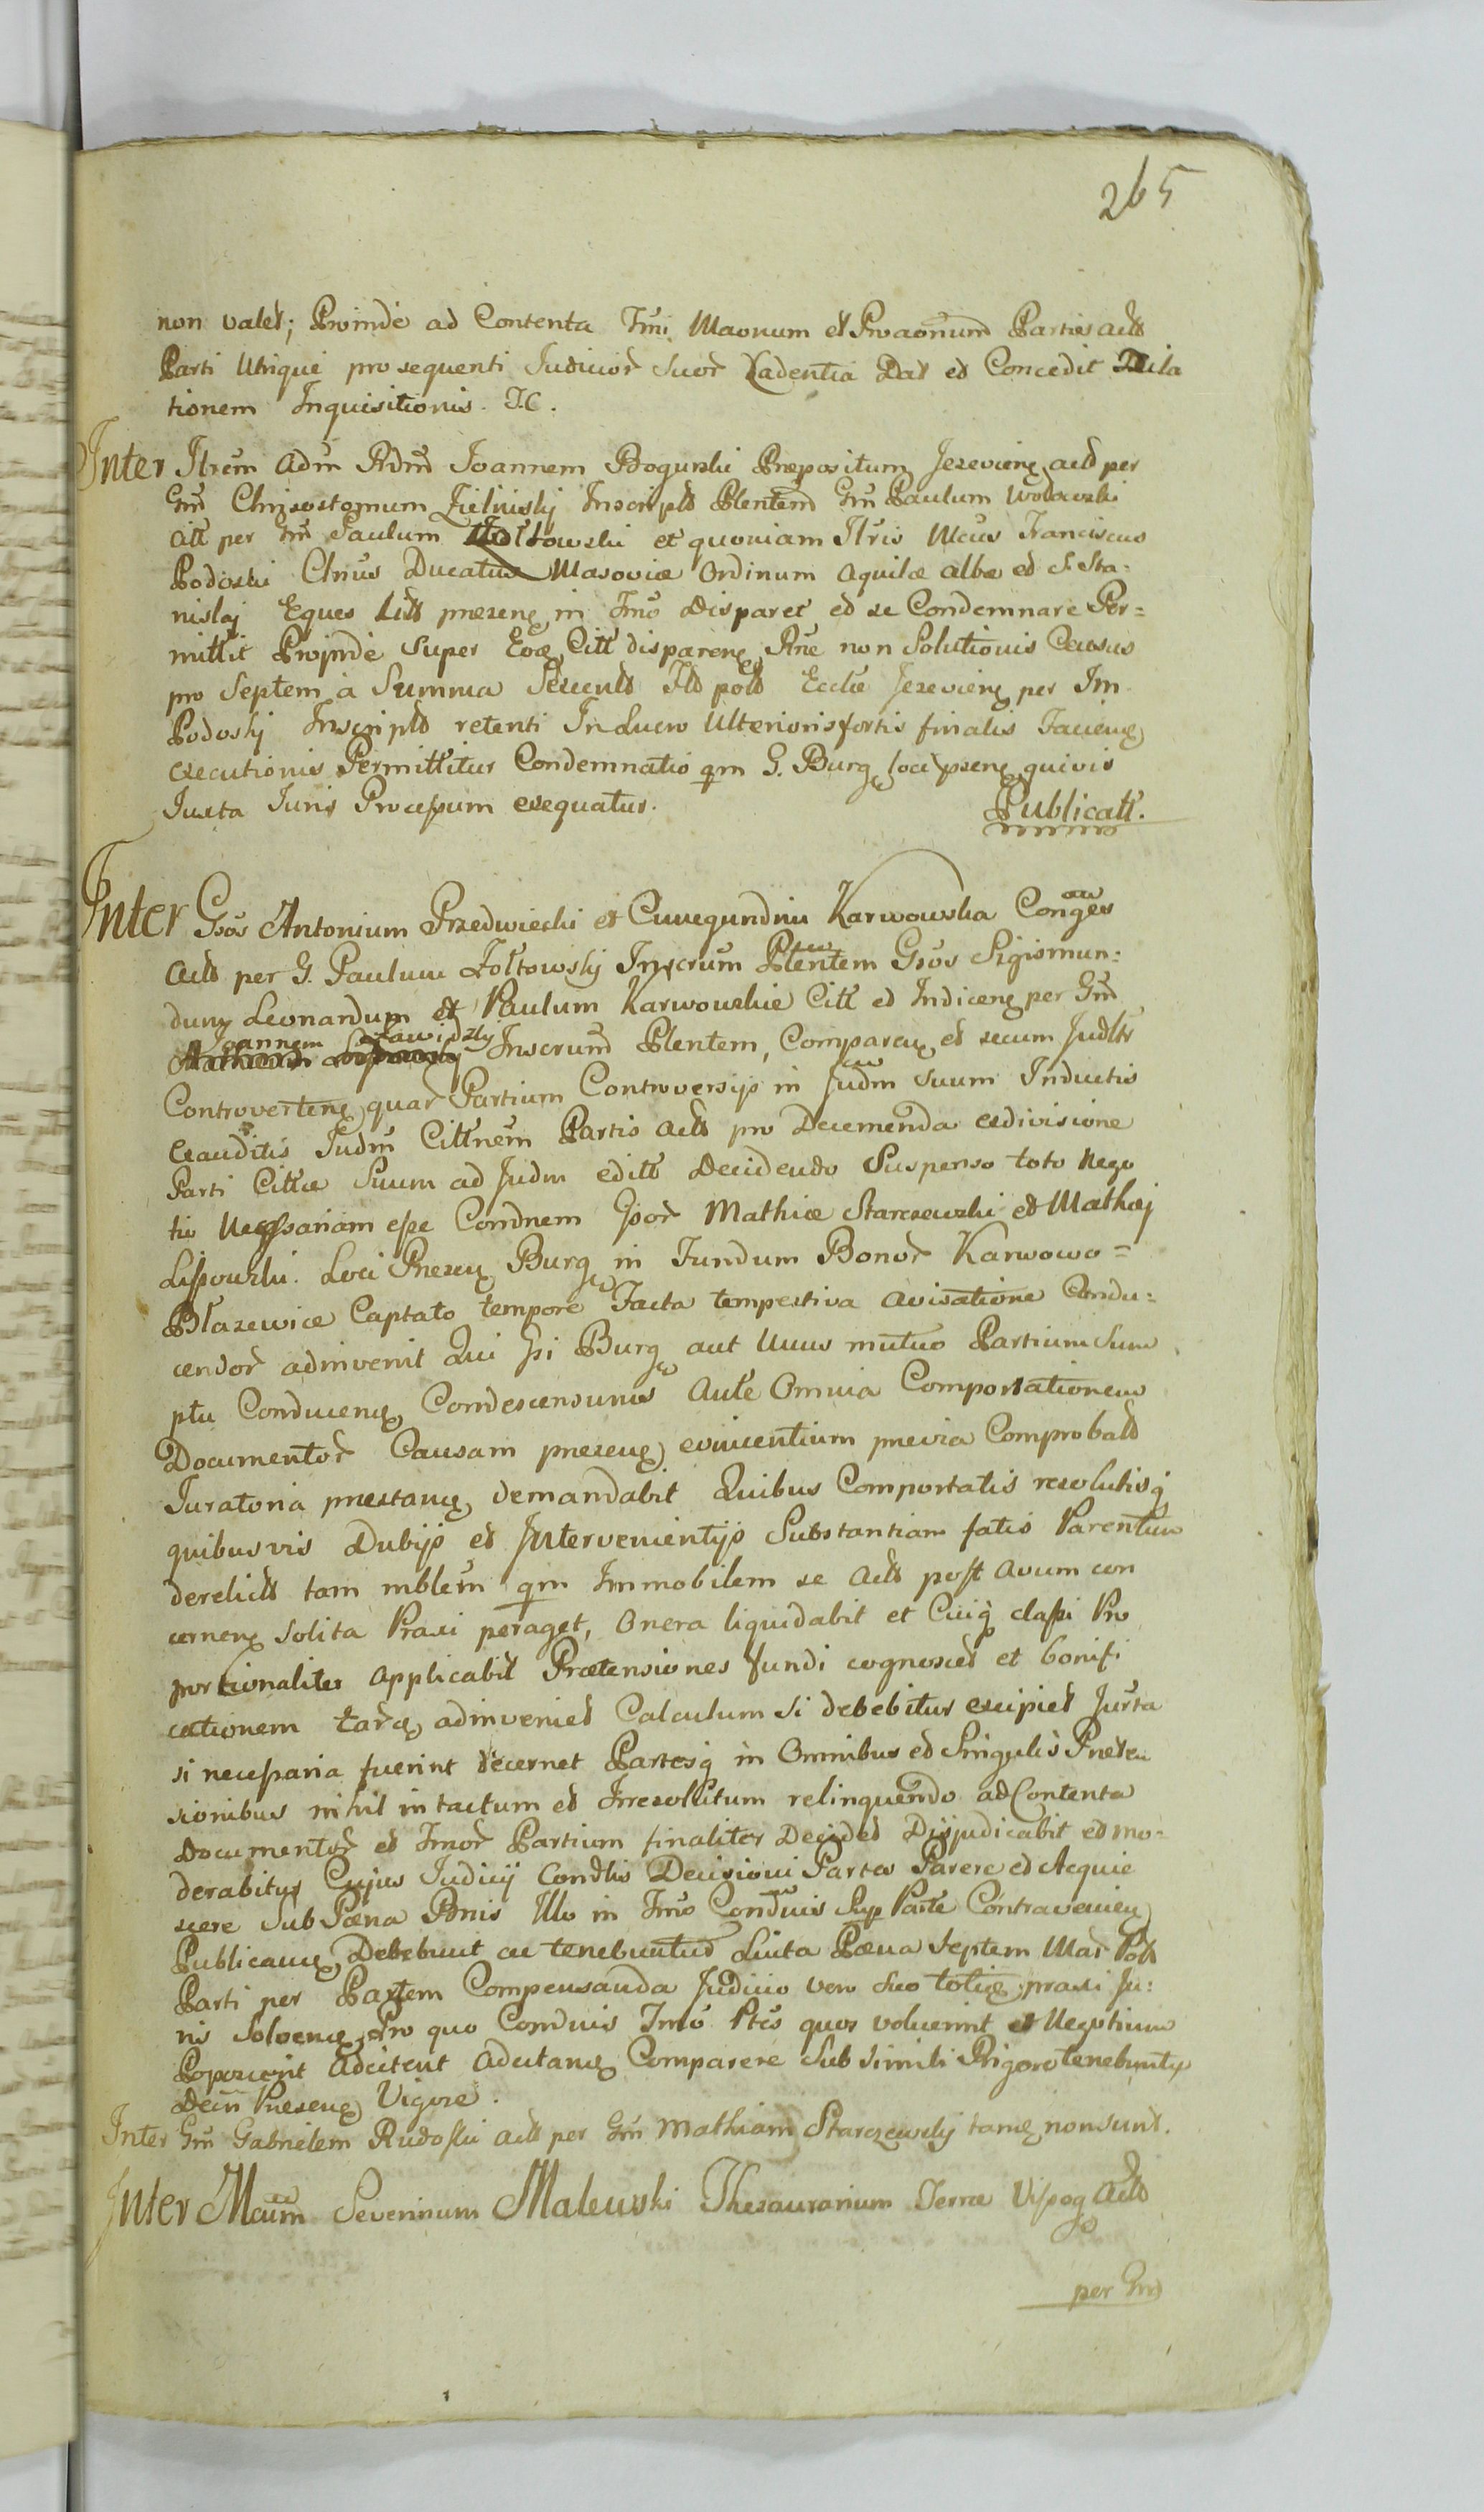 265
non valet; Proinde ad Contenta Tmi Maonum et Proaonum Parties actt
Parti Utrique pro sequenti Judicior Suor Kadentia Dat et Concedit Dila
tionem Inquisitionis. T.C.
Inter Ilrem Adm Rdm Joannem Bogurski Præpositum Jezeviens actt per
Gm Chrisostomum Zielinskj Inscriptt Plentem Gm Paulum Wodowski
citt per Gm Paulum Żołtowski et quoniam Ilris Mcus Franciscus
Podoski Clrius Ducatus Masoviæ Ordinum Aquilæ albæ et S. Sta:
nislaj Eques Litt præsens in Tmo disparet et se Condemnare Per=
mittit Proinde Super Eoæ Citt disparens Rne non Solutionis Census
pro Septem à Summa Sexcentt Tll poll Eccliæ Jezeviens per Im
Podoskj Inscriptt retenti In Lucro Ulterioris fortis finalis Faciens
executionis Permittitur Condemnatio qm G. Burg loci præsens quivis
Juxta Juris Processum exequatur.
Publicatt.
Inter Gsos Antonium Przedwiecki et Cunegundim Karwowska Conges
actt per G. Paulum Żołtowskj Inscrum Plentem Gsos Sigismun:
dum Leonardum et Paulum Karwowskie Citt et Indicens per Gm
Joannem Zawidzkj Inscrum Plentem, Comparens et secum Judltr
Controvertens quar Partium Controversijs in Judm Suum Inductis
Exauditis Judm Cittnem Partis actt pro Decernenda exdivisione
Parti Cittæ Suum ad Judm editt Decidendo Suspenso toto Nego
tio Necessariam esse Condnem Gsor Mathiæ Starczewski et Mathæj
Lipowski. Loci Præsens Burg in Fundum Bonor Karwowo=
Błazewice Captato tempore Facta tempestiva avisatione Condu:
cendor adinvenit Qui Gsi Burg aut Unus mutuo Partium Sum
ptu Conducens Condescensuris Ante Omnia Comportationem
Documentor Causam præsens evincentium prævia Comprobatt
Juratoria præstans demandabit Quibus Comportatis resolutisq
quibusvis Dubijs et Intervenientijs Substantiam fatis Parentum
derelictt tam mblem qm Immobilem se actt post avum con
cernens Solita Praxi peraget, Onera liquidabit et Cuiq classi Pro
portionaliter Applicabit Prætensiones fundi cognoscet et bonifi
cationem tars adinveniet Calculum si debebitur excipiet Jurta
si necessaria fuerint decernet Partesq in Omnibus et Singulis Præten
sionibus nihil intactum et Irresollutum relinquendo ad Contenta
Documentor et Tmor Partium finaliter Decidet Dijudicabit et mo=
derabitur Cujus Judicij Condlis Decisioni Partes Parere et Acquie
scere Sub Pæna Bnis Illo in Tmo Condnis Sup Parte Contravenien
Publicans Debebunt ac tenebuntur Luita Pæna Septem Mar Poll
Parti per Partem Compensanda Judicio vero Suo toties praxi Ju:
ris Solvens Pro quo Condnis Tmo Ptes quos voluerint et Negotium
Poposcerit Adcitent Adcitans Comparere Sub Simili Rigore tenebunty
Decri Præsens Vigore.
Inter Gm Gabrielem Rudoski actt per Gm Mathiam Starczewskj tans non sunt.
Inter Mcum Severinum Malewski Thesaurarium Terræ Visog actt
per Gm